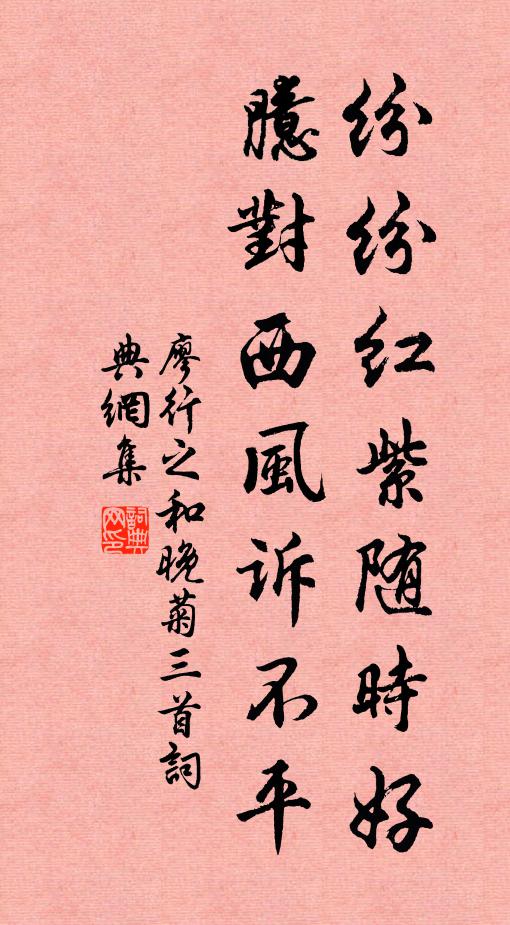 纷纷红紫随時好
臆對西風诉不平
廖行之和晚菊三首詞
典網集
詞典
网印